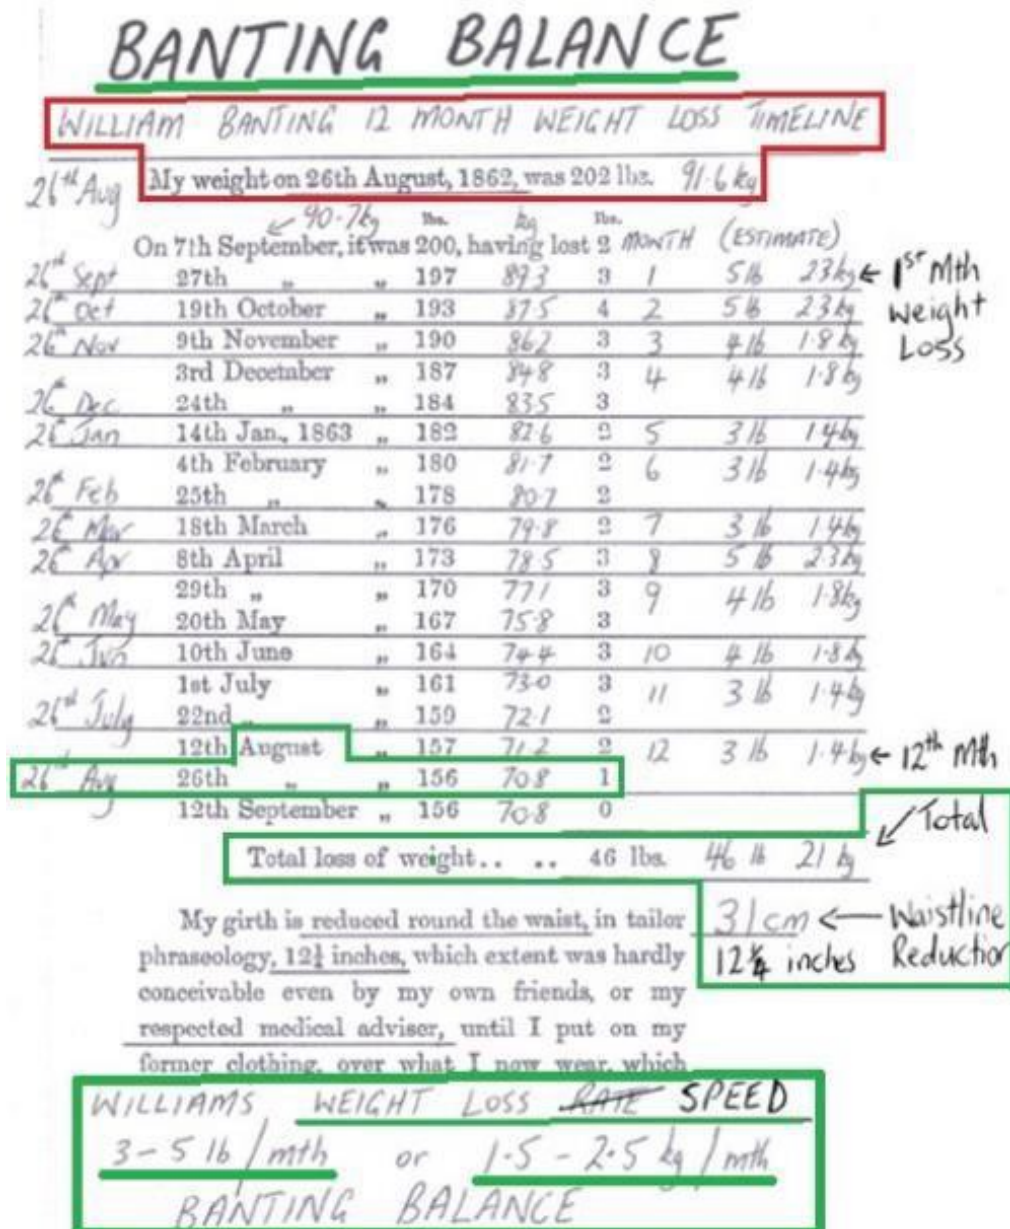 BANTING BALANCE
WILLIAM BANTING 12 MONTH WEIGHT LOSS TIMELINE
26th Aug My weight on 26th August, 1862, was 202 lbs. 91.6 kg
90.7kg lbs. kg lbs.
On 7th September, it was 200, having lost 2 MONTH (ESTIMATE)
26th Sept 27th „ „ 197 89.3 3 1 5 lb 2.3kg ← 1st Mth
26th Oct 19th October „ 193 87.5 4 2 5 lb 2.3kg weight
26th Nov 9th November „ 190 86.2 3 3 4 lb 1.8kg Loss
3rd Decetaber „ 187 84.8 3 4 4 lb 1.8kg
26th Dec 24th „ „ 184 83.5 3
26th Jan 14th Jan., 1863 „ 182 82.6 2 5 3 lb 1.4kg
4th February „ 180 81.7 2 6 3 lb 1.4kg
26th Feb 25th „ „ 178 80.7 2
26th Mar 18th March „ 176 79.8 2 7 3 lb 1.4kg
26th Apr 8th April „ 173 78.5 3 8 5 lb 2.3kg
29th „ „ 170 77.1 3 9 4 lb 1.8kg
26th May 20th May „ 167 75.8 3
26th Jun 10th June „ 164 74.4 3 10 4 lb 1.8kg
1st July „ 161 73.0 3 11 3 lb 1.4kg
26th July 22nd „ „ 159 72.1 2
12th August „ 157 71.2 2 12 3 lb 1.4kg ← 12th Mth
26th Aug 26th „ „ 156 70.8 1
12th September „ 156 70.8 0
Total
Total loss of weight.. .. 46 lbs. 46 lb 21 kg
My girth is reduced round the waist, in tailor 31cm ← Waistline
phraseology, 12¼ inches, which extent was hardly 12¼ inches Reduction
conceivable even by my own friends, or my
respected medical adviser, until I put on my
former clothing, over what I now wear, which
WILLIAMS WEIGHT LOSS RATE SPEED
3-5 lb/mth or 1.5-2.5 kg/mth
BANTING BALANCE